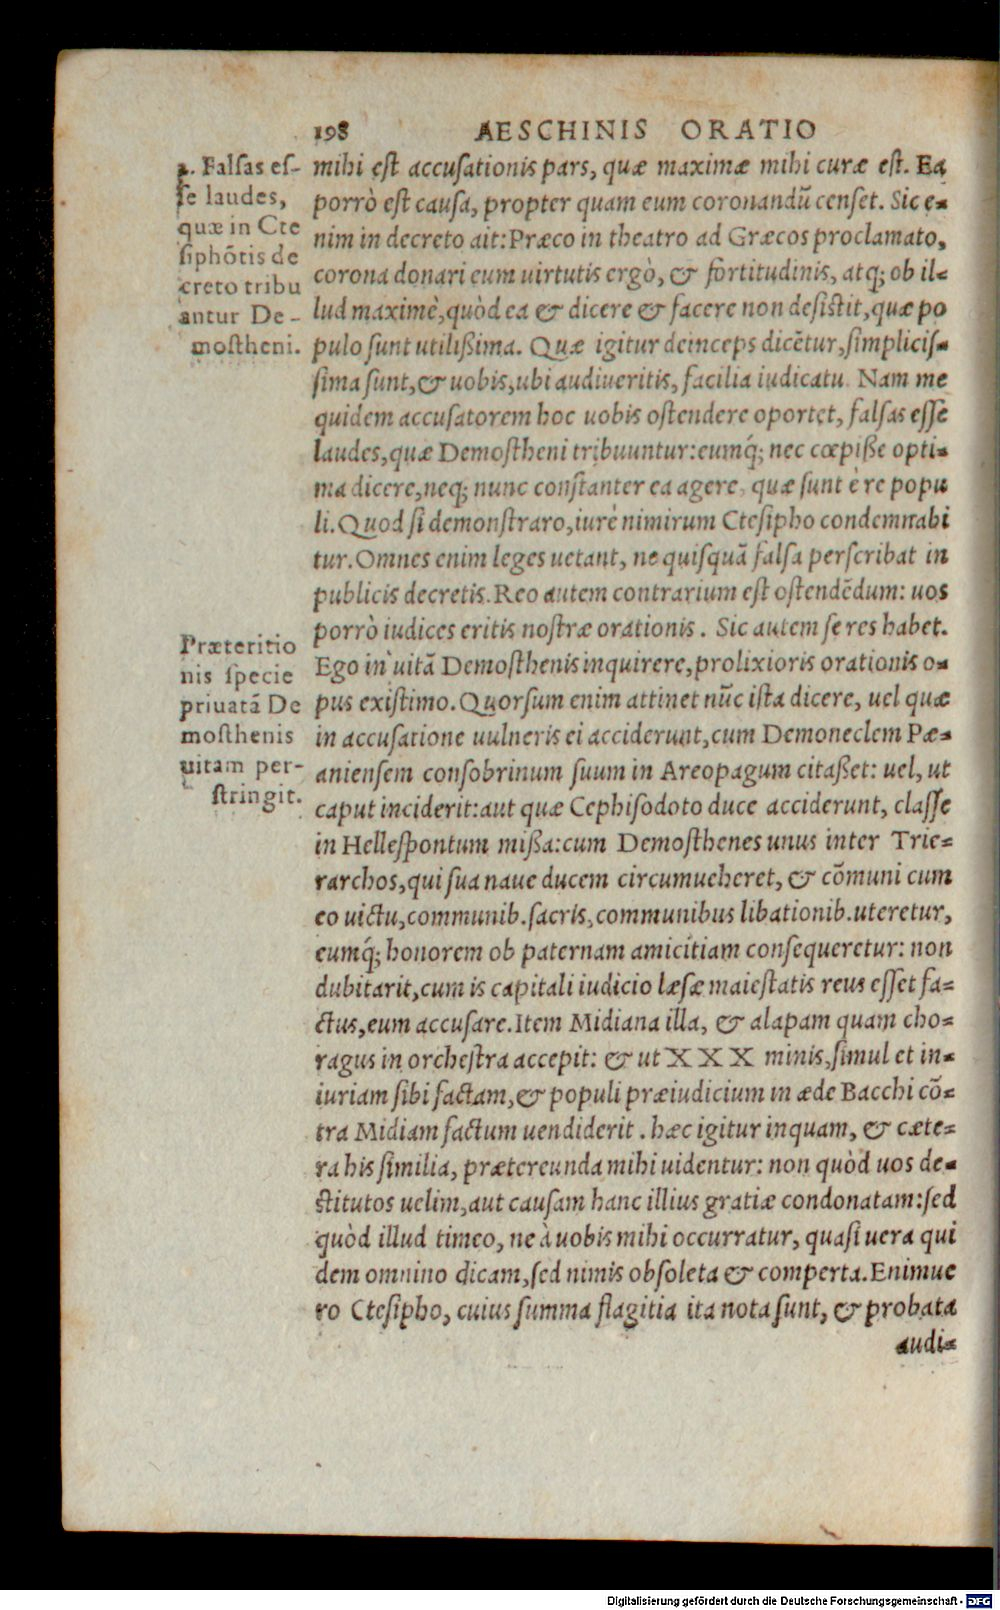 198 AESCHINIS ORATIO
2. Falsas es-
se laudes,
quæ in Cte
siphōtis de
creto tribu
antur De-
mostheni.
mihi est accusationis pars, quæ maximæ mihi curæ est. Ea
porrò est causa, propter quam eum coronandū censet. Sic e-
nim in decreto ait: Præco in theatro ad Græcos proclamato,
corona donari eum uirtutis ergò, & fortitudinis, atq; ob il-
lud maximè, quòd ea & dicere & facere non desistit, quæ po
pulo sunt utilißima. Quæ igitur deinceps dicētur, simplicis-
sima sunt, & uobis, ubi audiueritis, facilia iudicatu. Nam me
quidem accusatorem hoc uobis ostendere oportet, falsas esse
laudes, quæ Demostheni tribuuntur: eumq́; nec cœpiße opti-
ma dicere, neq; nunc constanter ea agere, quæ sunt è re popu
li. Quod si demonstraro, iurè nimirum Ctesipho condemnabi
tur. Omnes enim leges uetant, ne quisquā falsa perscribat in
publicis decretis. Reo autem contrarium est ostendēdum: uos
porrò iudices eritis nostræ orationis. Sic autem se res habet.
Præteritio
nis specie
priuatā De
mosthenis
uitam per-
stringit.
Ego in uitā Demosthenis inquirere, prolixioris orationis o-
pus existimo. Quorsum enim attinet nūc ista dicere, uel quæ
in accusatione uulneris ei acciderunt, cum Demoneclem Pæ-
aniensem consobrinum suum in Areopagum citaßet: uel, ut
caput inciderit: aut quæ Cephisodoto duce acciderunt, classe
in Hellespontum mißa: cum Demosthenes unus inter Trie-
rarchos, qui sua naue ducem circumueheret, & cōmuni cum
eo uictu, communib. sacris, communibus libationib. uteretur,
eumq́; honorem ob paternam amicitiam consequeretur: non
dubitarit, cum is capitali iudicio læsæ maiestatis reus esset fa-
ctus, eum accusare. Item Midiana illa, & alapam quam cho-
ragus in orchestra accepit: & ut XXX minis, simul et in-
iuriam sibi factam, & populi præiudicium in æde Bacchi cō-
tra Midiam factum uendiderit. hæc igitur inquam, & cæte-
ra his similia, prætereunda mihi uidentur: non quòd uos de-
stitutos uelim, aut causam hanc illius gratiæ condonatam: sed
quòd illud timeo, ne à uobis mihi occurratur, quasi uera qui
dem omnino dicam, sed nimis obsoleta & comperta. Enimue
ro Ctesipho, cuius summa flagitia ita nota sunt, & probata
audi-
Digitalisierung gefördert durch die Deutsche Forschungsgemeinschaft - DFG